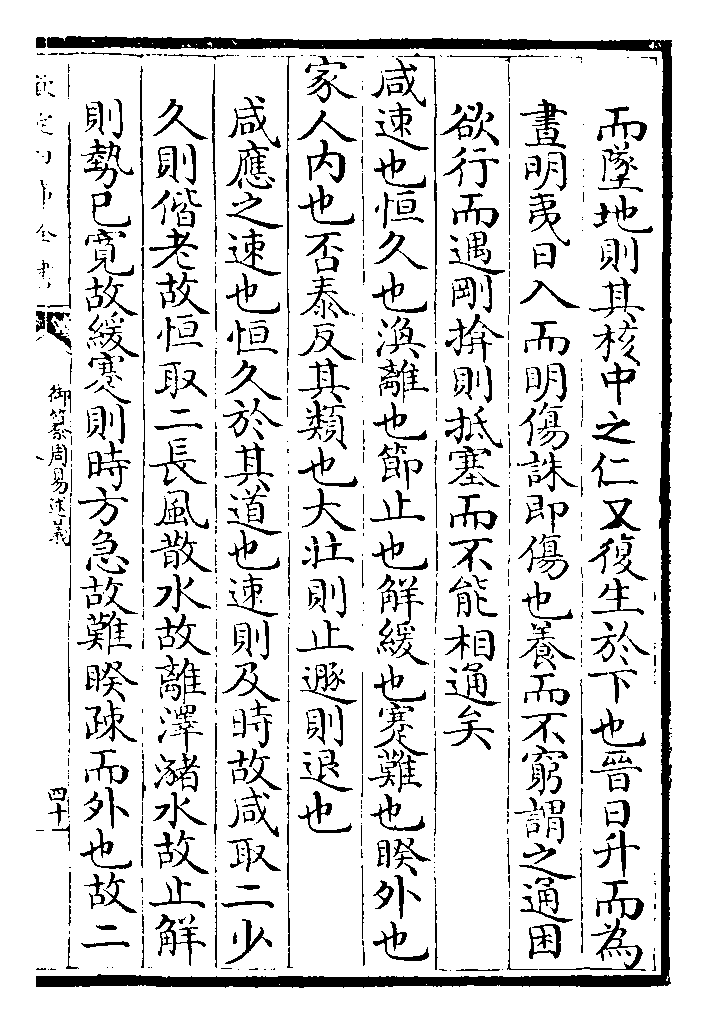 而墜地則其核中之仁又復生於下也晉日升而為
晝明夷日入而明傷誅即傷也養而不窮謂之通困
欲行而遇剛揜則抵塞而不能相通矣
咸速也恒久也渙離也節止也解緩也蹇難也睽外也
家人內也否泰反其類也大壯則止遯則退也
咸應之速也恒久於其道也速則及時故咸取二少
久則偕老故恒取二長風散水故離澤瀦水故止解
則勢已寬故緩蹇則時方急故難睽疎而外也故二
御纂周易述義
四十